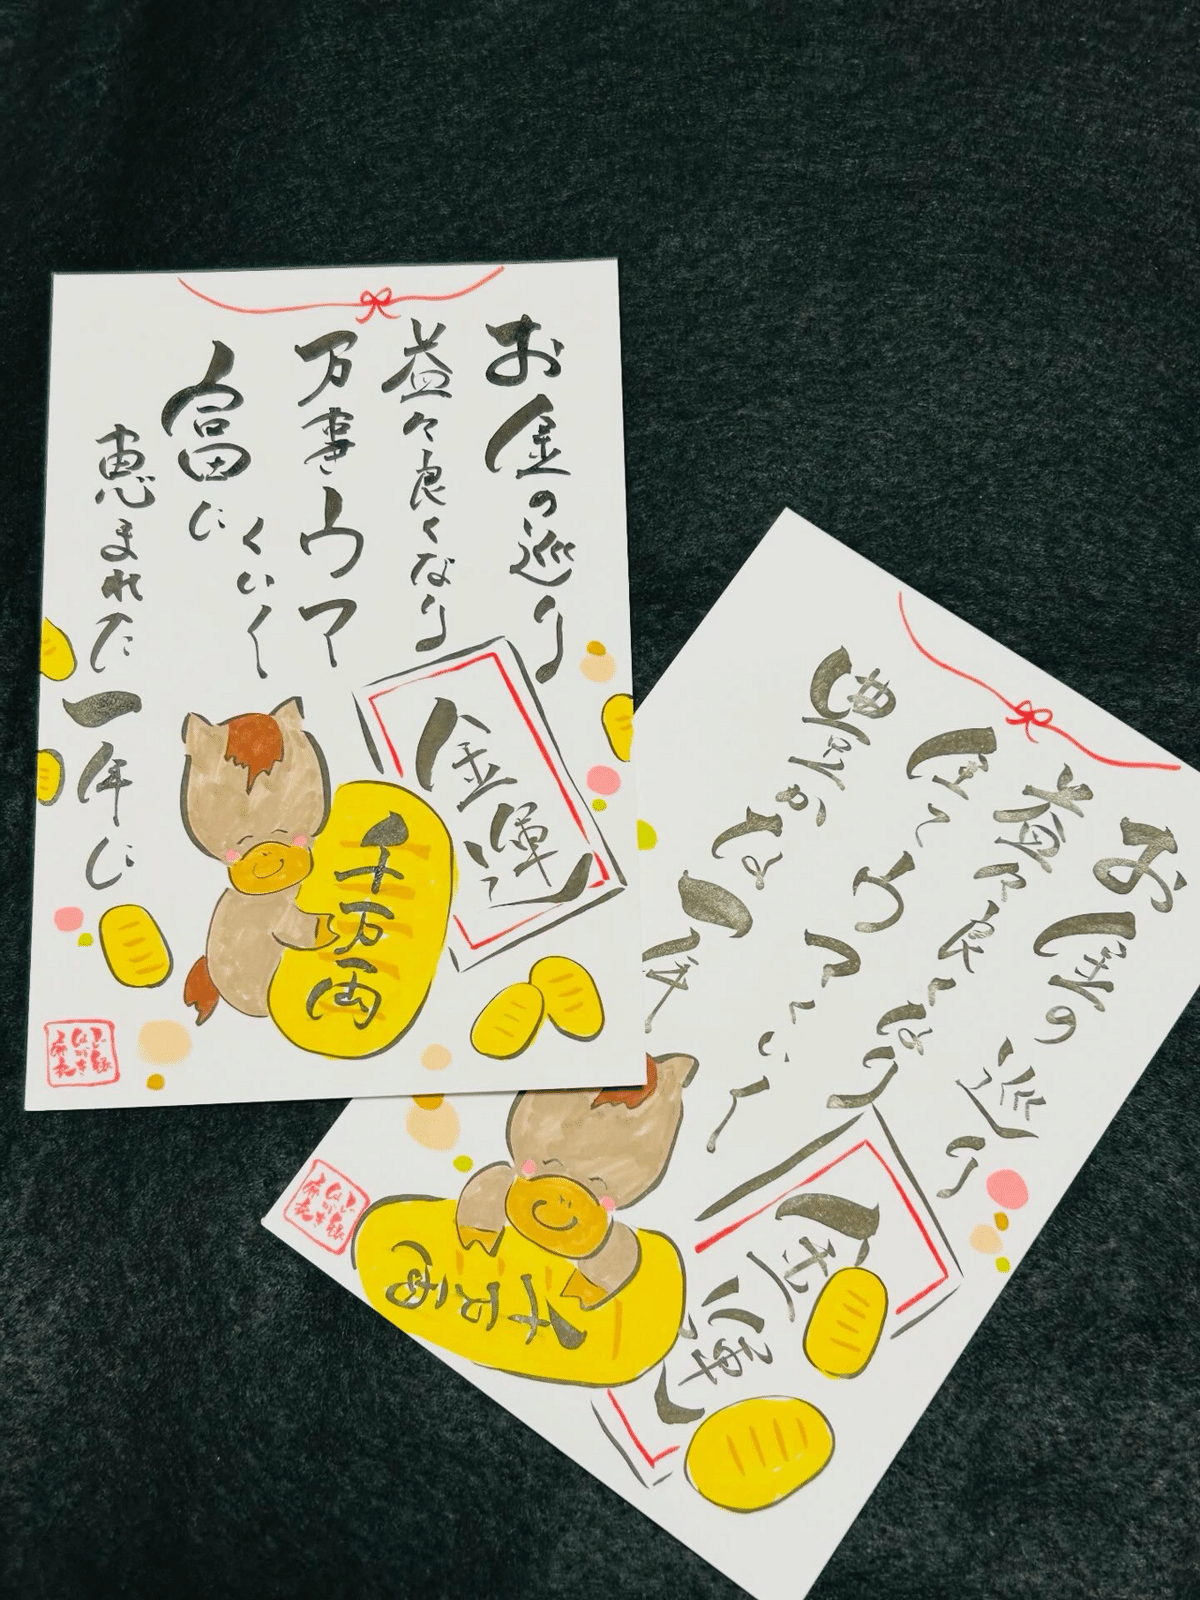 お金の巡り
益々良くなり
万事ウマ
くいく
富に
恵まれた一年に
金運
千万両
お金の巡り
益々良くなり
全てウマくいく
豊かな一年
金運
千万両